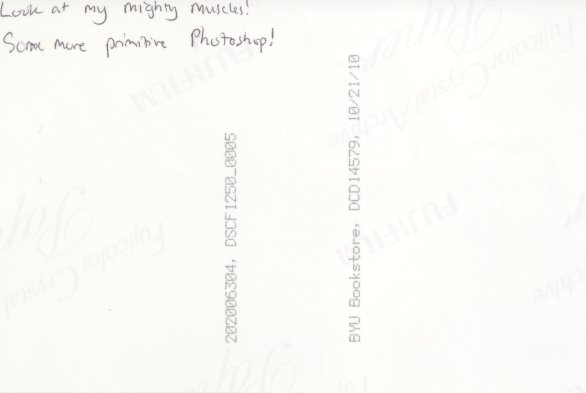 Look at my mighty muscles!
Some more primitive Photoshop!
202006304, DSCF1250_0005
BYU Bookstore, DCD14579, 10/21/10
FUJIFILM
Fujicolor Crystal Archive
Paper
Fujicolor Crystal
FUJIFILM